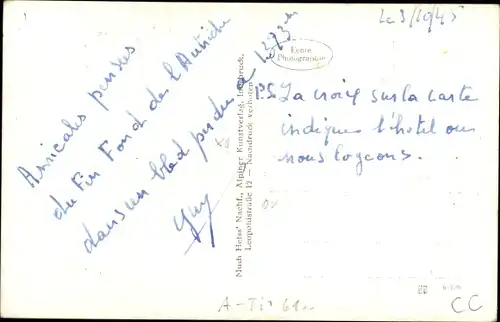 1
le 3/10/45
Amicales pensées
du Fin Fond de l'Autriche
dans un bled perdu a 1373 m
Guy
Echte
Photographie
P.S. La croix sur la carte
indique l'hôtel ou
nous logeons.
Much Heiss' Nachf., Alpiner Kunstverlag, Innsbruck,
Leopoldstraße 12 — Nachdruck verboten
A-Tir 61
CC